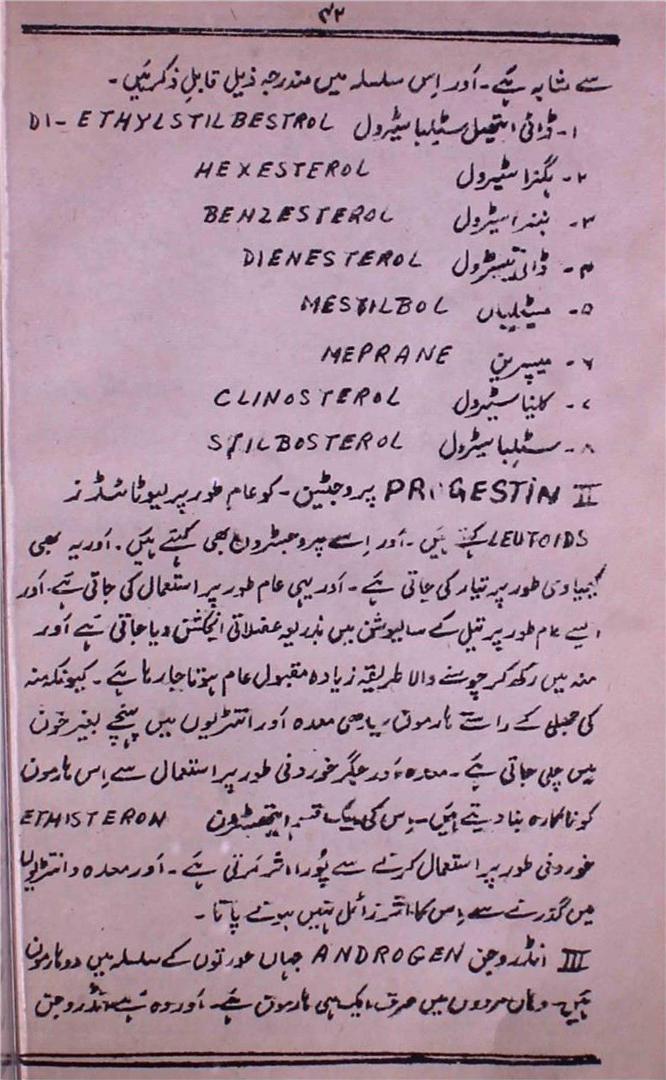 ۴۲
سے مشابہ ہَے۔ اَور اِس سلسلہ میں مندرجہ ذیل قابلِ ذکر ہَیں۔
۱۔ ڈائی ایتھیل سٹیلباسیٹرول DI-ETHYLSTILBESTROL
۲۔ ہگزاسٹیرول HEXESTEROL
۳۔ بنزاسیٹرول BENZESTEROL
۴۔ ڈائنیسٹرول DIENESTEROL
۵۔ MESTILBOL
۶۔ میپرین MEPRANE
۷۔ کلیناسٹیرول CLINOSTEROL
۸۔ سٹلباسیٹرول STILBOSTEROL
II PROGESTIN پروجٹین۔ کو عام طور پر لیوٹائڈز
LEUTOIDS کہتے ہَیں۔ اَور اِسے پروجسٹرون بھی کہتے ہَیں۔ اَور یہ بھی
کیمیاوی طور پر تیار کی جاتی ہَے۔ اَور یہی عام طور پر استعمال کی جاتی ہَے۔ اَور
اِسے عام طور پر تیل کے سالیوشن میں بذریعہ عضلاتی انجکشن دیا جاتی ہَے اَور
منہ میں رکھ کر چوسنے والا طریقہ زیادہ مقبول عام ہوتا جا رہا ہَے۔ کیونکہ منہ
کی جھلی کے راستے ہارمون سیدھی معدہ اَور انتڑیوں میں پہنچے بغیر خون
میں چلی جاتی ہَے۔ معدہ اَور جگر خوردنی طور پر استعمال سے اِس ہارمون
کو ناکارہ بنا دیتے ہَیں۔ اِس کی ایک قسم ایتھسٹرون ETHISTERON
خوردنی طور پر استعمال کرنے سے پُورا اثر کرتی ہَے۔ اَور معدہ و انتڑیوں
میں گذرنے سے اِس کا اثر زائل نہیں ہونے پاتا۔
III انڈروجن ANDROGEN جہاں عورتوں کے سلسلہ میں دو ہارمون
ہَیں۔ وہاں مردوں میں صرف ایک ہی ہارمون ہَے۔ اَور وہ ہَے انڈروجن